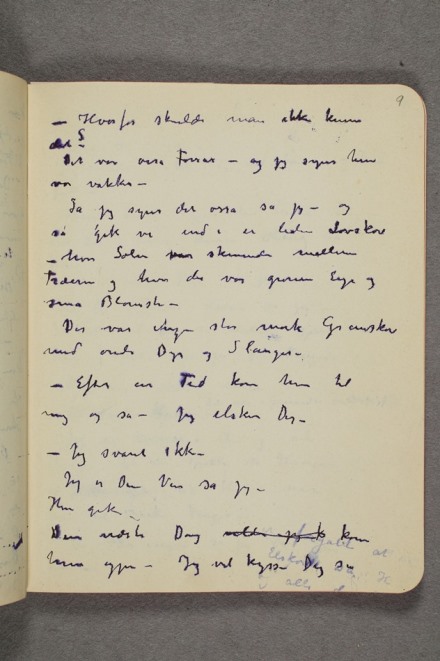 9
— Hvorfor skulde man ikke kunne
det —
Det var ossa Foraar — og jeg synes hun
var vakker —
Ja jeg synes det ossa sa jeg — og
så gik vi ind i en liden Lovskov
— hvor Solen skinnede mellem
Træerne og hvor der var grønne Enge og
små Blomster —
Der var ingen stor mørk Granskov
med onde Dyr og Slanger —
— Efter en Tid kom hun til
mig og sa — jeg elsker Dig —
— Jeg svarte ikke —
Jeg er Din Ven sa jeg —
Hun gik —
Den næste Dag kom
hun igjen — Jeg vil kysse Dig sa